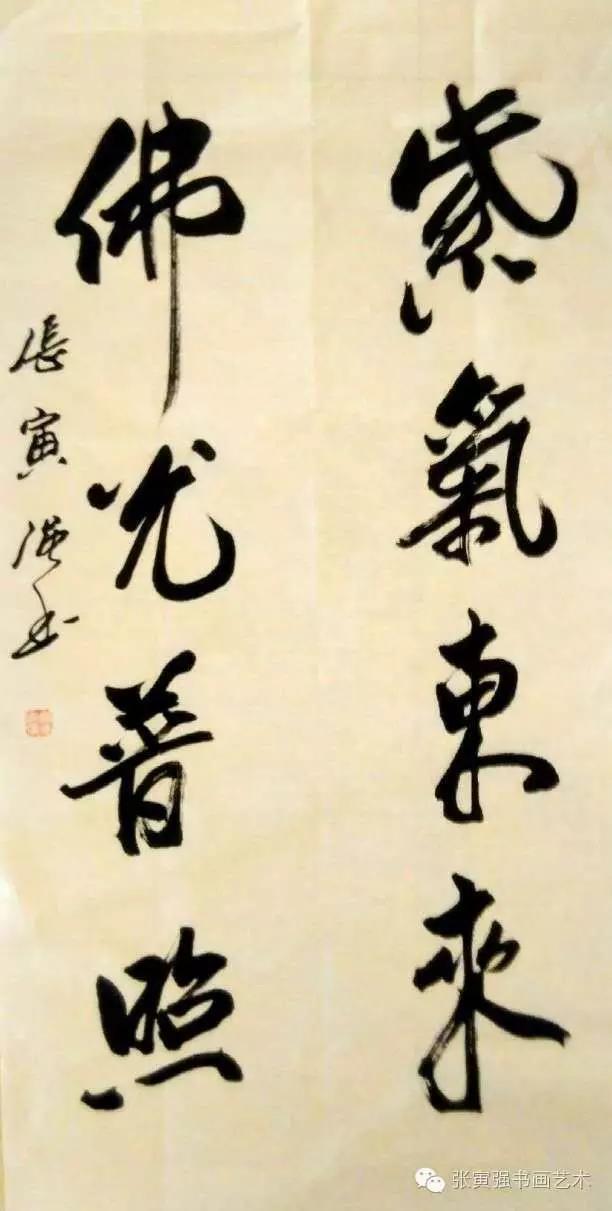 紫氣東來
佛光普照
張寅强书
张寅强书画艺术